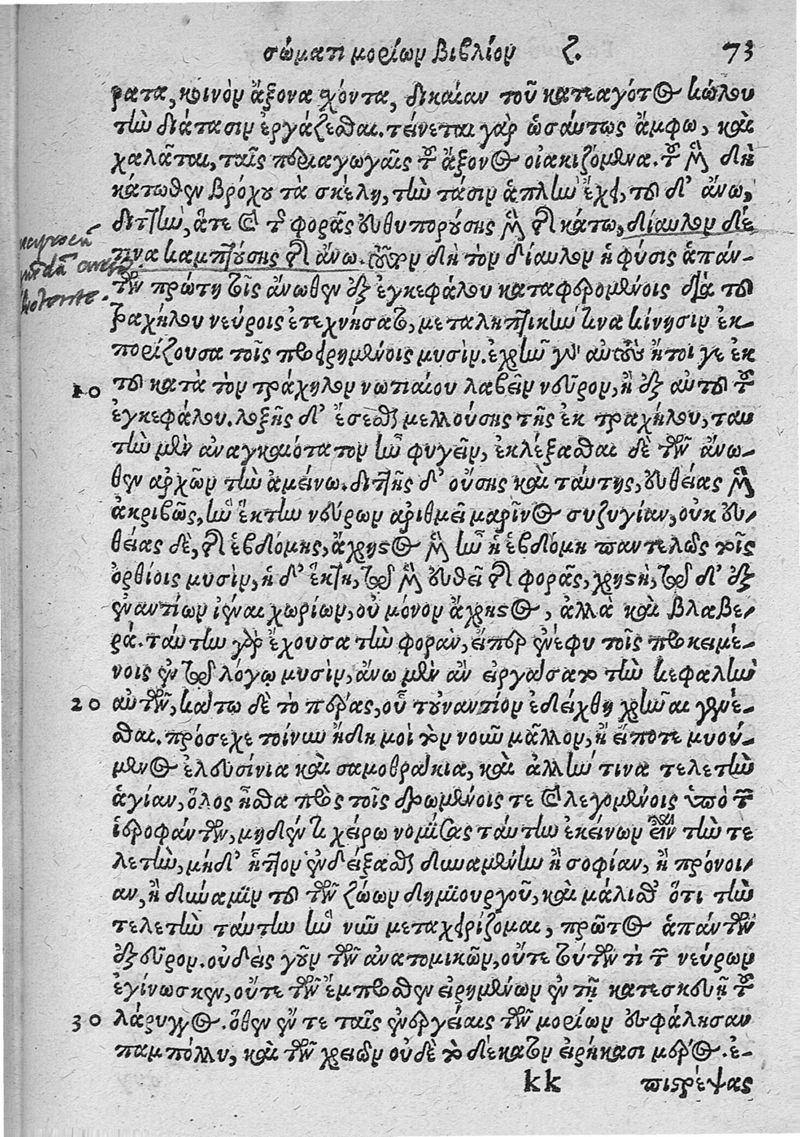 σώματι μορίων βιβλίον ζ. 73
ρατα, κοινὸν ἄξονα ἔχοντα, δικαίαν τοῦ κατεαγότος κώλου
τὴν διάτασιν ἐργάζεσθαι. τείνεται γὰρ ὡσαύτως ἄμφω, καὶ
χαλᾶται, ταῖς περιαγωγαῖς τοῦ ἄξονος οἰακιζόμενα. τοῦ μὲν δὴ
κάτωθεν βρόχου τὰ σκέλη, τὴν τάσιν ἁπλῆν ἔχει, τοῦ δ' ἄνω,
διττὴν, ἅτε καὶ τῆς φορᾶς εὐθυπορούσης μὲν τῆς κάτω, δίαυλον δέ
τινα καμπτούσης τῆς ἄνω. τοιοῦτον δὴ τὸν δίαυλον ἡ φύσις ἁπάν-
των πρώτη τοῖς ἄνωθεν ἐξ ἐγκεφάλου καταφερομένοις διὰ τοῦ
τραχήλου νεύροις ἐτεχνήσατο, μεταληπτικήν τινα κίνησιν ἐκ-
πορίζουσα τοῖς προειρημένοις μυσίν. ἐχρῆν γὰρ αὐτοὺς ἤτοι γε ἐκ
10 τοῦ κατὰ τὸν τράχηλον νωτιαίου λαβεῖν νεῦρον, ἢ ἐξ αὐτοῦ τοῦ
ἐγκεφάλου. λοξῆς δ' ἔσεσθαι μελλούσης τῆς ἐκ τραχήλου, ταύ
την μὲν ἀναγκαιότατον ἦν φυγεῖν, ἐκλέξασθαι δὲ τῶν ἄνω-
θεν ἀρχῶν τὴν ἀμείνω. διττῆς δ' οὔσης καὶ ταύτης, εὐθείας μὲν
ἀκριβῶς, ἣν ἕκτην νεύρων ἀριθμεῖ μαρῖνος συζυγίαν, οὐκ εὐ-
θείας δὲ, τῆς ἑβδόμης, ἄχρηστος μὲν ἦν ἡ ἑβδόμη παντελῶς τοῖς
ὀρθίοις μυσὶν, ἡ δ' ἕκτη, τῷ μὲν εὐθεῖ τῆς φορᾶς, χρηστὴ, τῷ δ' ἐξ
ἐναντίων ἰέναι χωρίων, οὐ μόνον ἄχρηστος, ἀλλὰ καὶ βλαβε-
ρά. ταύτην γὰρ ἔχουσα τὴν φορὰν, εἴπερ ἐνέφυ τοῖς προκειμέ-
νοις ἐν τῷ λόγῳ μυσὶν, ἄνω μὲν ἂν εἰργάσατο τὴν κεφαλὴν
20 αὐτῶν, κάτω δὲ τὸ πέρας, οὗ τοὐναντίον ἐδείχθη χρῆναι γενέ-
σθαι. πρόσεχε τοίνυν ἤδη μοὶ τὸν νοῦν μᾶλλον, ἢ εἴποτε μυού-
μενος ἐλευσίνια καὶ σαμοθράκια, καὶ ἄλλην τινα τελετὴν
ἁγίαν, ὅλος ἦσθα πρὸς τοῖς δρωμένοις τε καὶ λεγομένοις ὑπὸ τῶν
ἱεροφαντῶν, μηδέν τι χείρω νομίσας ταύτην ἐκείνων εἶναι τὴν τε
λετὴν, μηδ' ἧττον ἐνδείξασθαι δυναμένην ἢ σοφίαν, ἢ πρόνοι-
αν, ἢ δύναμιν τοῦ τῶν ζώων δημιουργοῦ, καὶ μάλισθ' ὅτι τὴν
τελετὴν ταύτην ἣν νῦν μεταχειρίζομαι, πρῶτος ἁπάντων
ἐξεῦρον. οὐδεὶς γοῦν τῶν ἀνατομικῶν, οὔτε τούτων τὶ τῶν νεύρων
ἐγίνωσκεν, οὔτε τῶν ἔμπροσθεν εἰρημένων ἐν τῇ κατασκευῇ τοῦ
30 λάρυγγος. ὅθεν ἔν τε ταῖς ἐνεργείαις τῶν μορίων ἐσφάλησαν
παμπόλλυ, καὶ τῶν χρειῶν οὐδὲ τὸ δέκατον εἰρήκασι μέρος. ἐ-
kk πιστρέψας